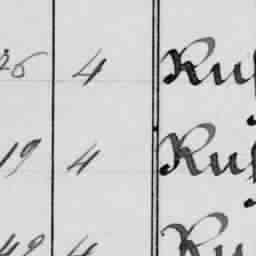 26 4 Ruf
19 4 Ruf
49 4 Ru